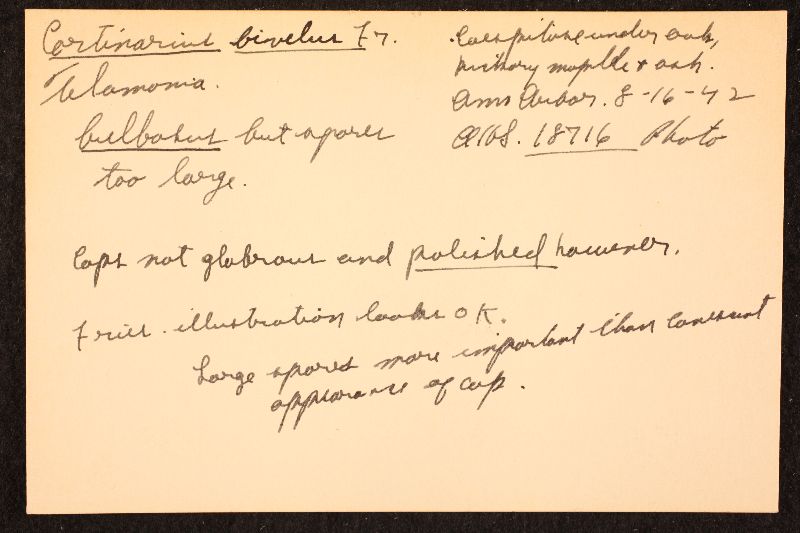 Cortinarius bivelus Fr.
Telamonia.
bulbosus but spores
too large.
Caespitose under oak,
hickory maplle & ash.
Ann Arbor. 8-16-42
AHS. 18716 Photo
Caps not glabrous and polished however.
Fries. illustration looks OK.
Large spores more important than
appearance of cap.